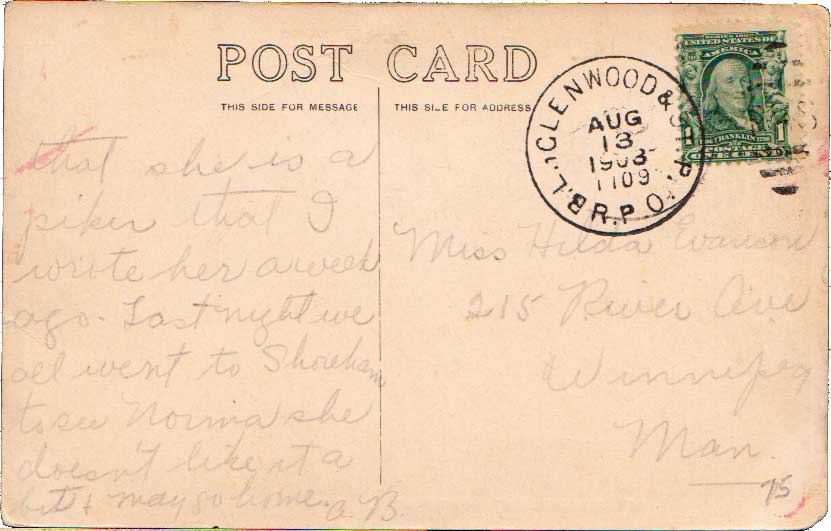 POST CARD
THIS SIDE FOR MESSAGE
THIS SIDE FOR ADDRESS
that she is a
piker that I
wrote her a week
ago. Last night we
all went to Shoreham
to see Norma she
doesn't like it a
bit & may go home. a B.
GLENWOOD & ST. P.
AUG
13
1908
1109
B.L. R.P.O.
SERIES 1902
UNITED STATES OF
AMERICA
FRANKLIN
POSTAGE
1
ONE CENT
Miss Hilda Evanson
215 River Ave
Winnipeg
Man.
75